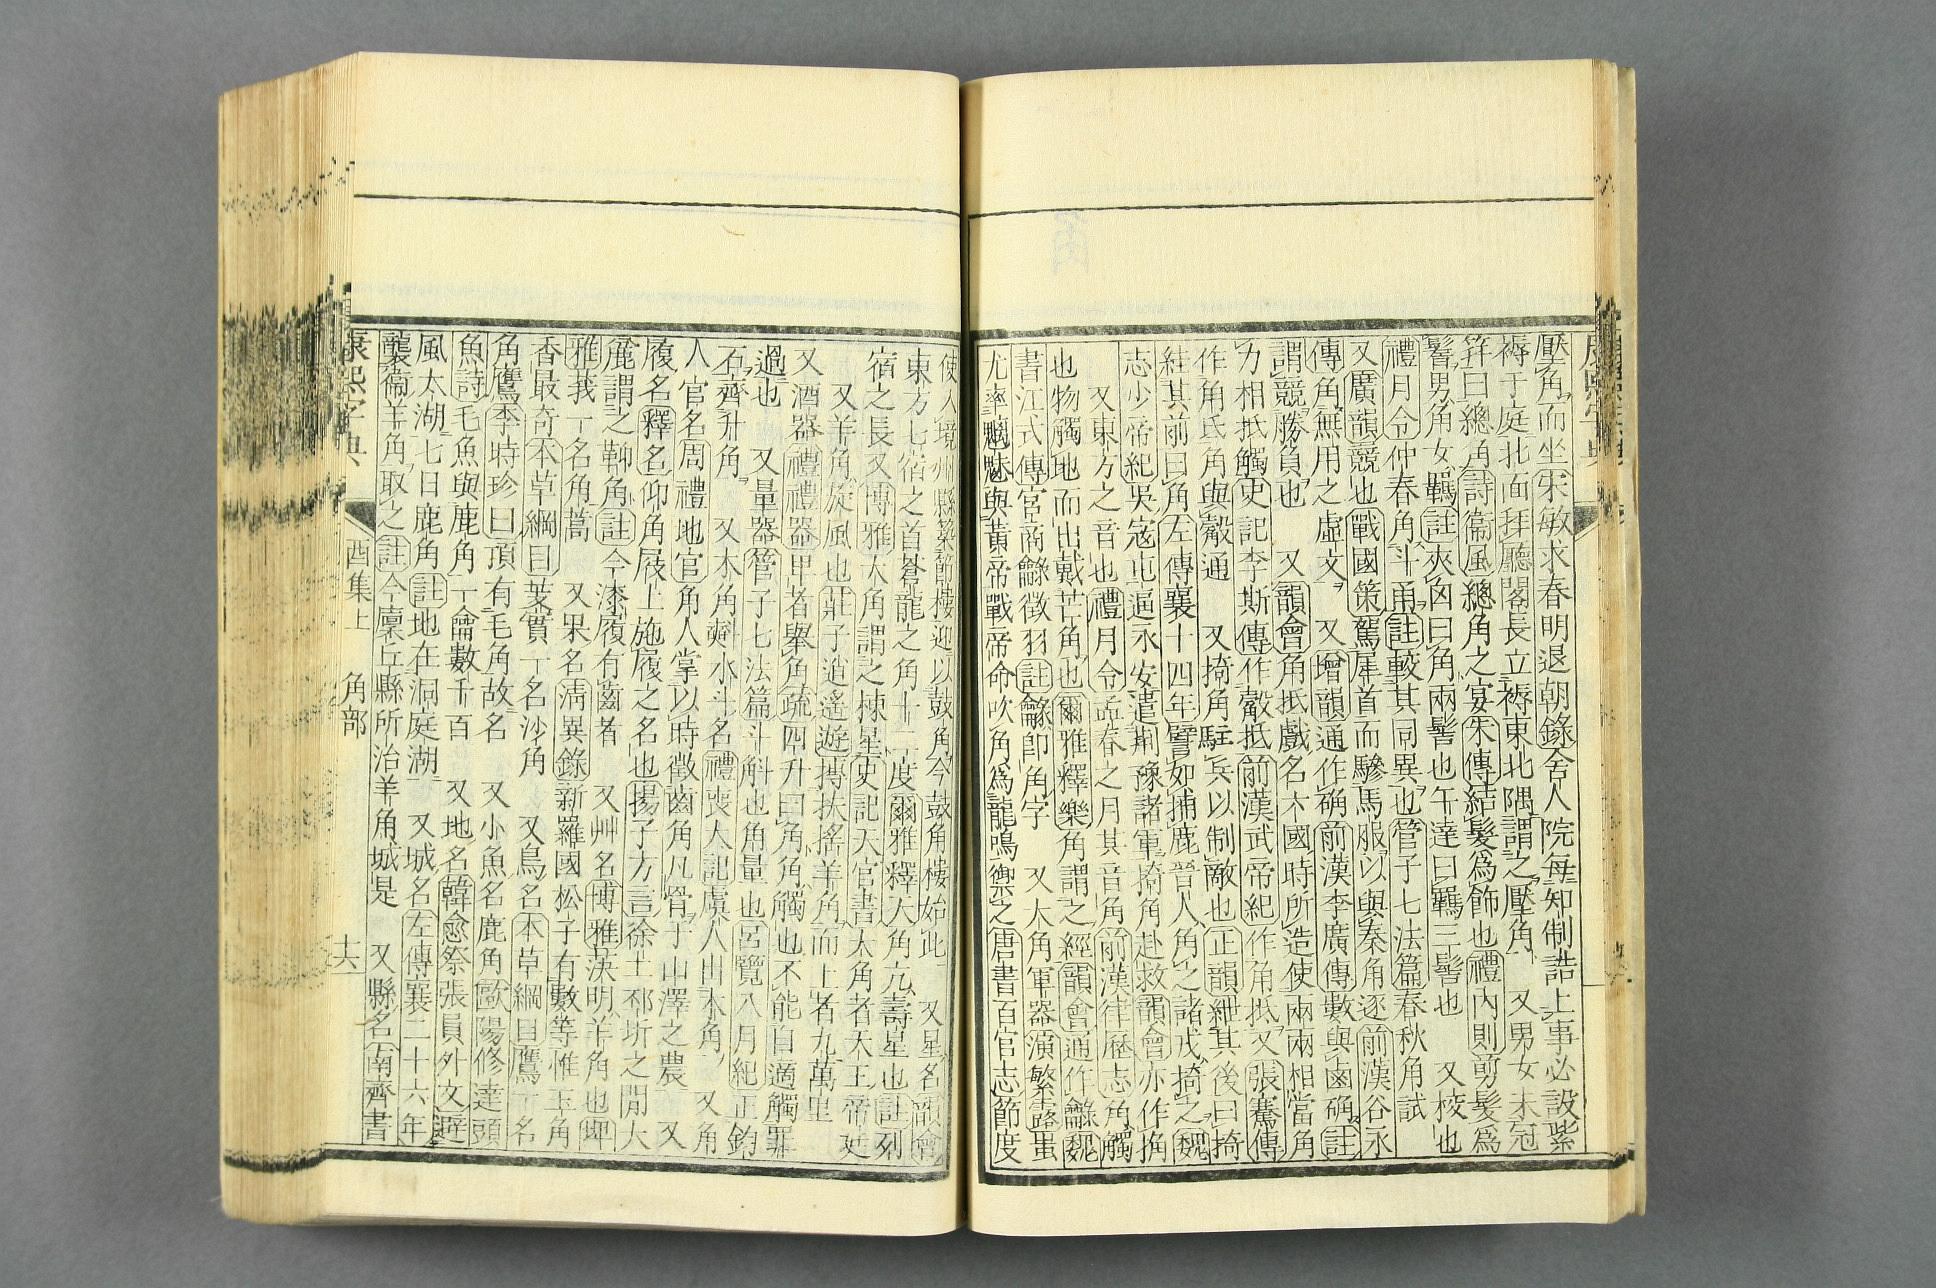 壓角而坐宋敏求春明退朝錄舍人院每知制誥上事必設紫
褥于庭北面拜廳閣長立褥東北隅謂之壓角 又男女未冠
笄曰總角詩衞風總角之宴朱傳結髮爲飾也禮內則剪髮爲
髻男角女羈註夾囟曰角兩髻也午達曰羈三髻也 又校也
禮月令仲春角斗甬註較其同異也管子七法篇春秋角試
又廣韻競也戰國策駕犀首而驂馬服以與秦角逐前漢谷永
傳角無用之虛文 又增韻通作确前漢李廣傳數與鹵确註
謂競勝負也 又韻會角抵戲名六國時所造使兩兩相當角
力相抵觸史記李斯傳作觳抵前漢武帝紀作角抵 又張騫傳
作角氐角與觳通 又掎角駐兵以制敵也正韻紲其後曰掎
絓其前曰角左傳襄十四年譬如捕鹿晉人角之諸戎掎之魏
志少帝紀吳寇屯逼永安遣荆豫諸軍掎角赴救韻會亦作捔
又東方之音也禮月令孟春之月其音角前漢律歷志角觸
也物觸地而出戴芒角也爾雅釋樂角謂之經韻會通作龣魏
書江式傳宮商龣徵羽註龣卽角字 又大角軍器演繁露蚩
尤率魑魅與黃帝戰帝命吹角爲龍鳴禦之唐書百官志節度
使入境州縣築節樓迎以鼓角今鼓角樓始此 又星名韻會
東方七宿之首蒼龍之角十二度爾雅釋天角亢壽星也註列
宿之長又博雅大角謂之棟星史記天官書大角者天王帝廷
又羊角旋風也莊子逍遙遊摶扶搖羊角而上者九萬里
又酒器禮禮器甲者舉角疏四升曰角角觸也不能自適觸罪
過也 又量器管子七法篇斗斛也角量也呂覽八月紀正鈞
石齊升角 又木角㪺水斗名禮喪大記虞人出木角 又角
人官名周禮地官角人掌以時徵齒角凡骨于山澤之農 又
履名釋名仰角屐上施履之名也揚子方言徐土邳圻之閒大
麄謂之䩕角註今漆履有齒者 又艸名博雅決明羊角也埤
雅莪一名角蒿 又果名淸異錄新羅國松子有數等惟玉角
香最奇本草綱目芰實一名沙角 又鳥名本草綱目鷹一名
角鷹李時珍曰頂有毛角故名 又小魚名鹿角歐陽修達頭
魚詩毛魚與鹿角一龠數千百 又地名韓愈祭張員外文避
風太湖七日鹿角註地在洞庭湖 又城名左傳襄二十六年
襲衞羊角取之註今廩丘縣所治羊角城是 又縣名南齊書
康熙字典 酉集上 角部 十六